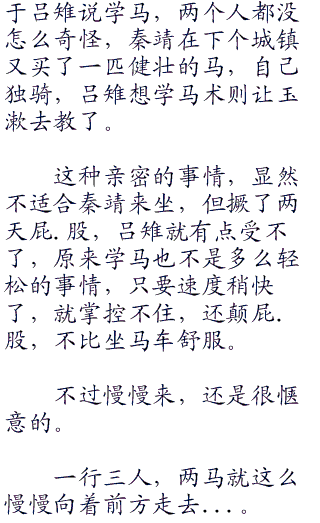 于吕雉说学马，两个人都没
怎么奇怪，秦靖在下个城镇
又买了一匹健壮的马，自己
独骑，吕雉想学马术则让玉
漱去教了。
这种亲密的事情，显然
不适合秦靖来坐，但撅了两
天屁.股，吕雉就有点受不
了，原来学马也不是多么轻
松的事情，只要速度稍快
了，就掌控不住，还颠屁.
股，不比坐马车舒服。
不过慢慢来，还是很惬
意的。
一行三人，两马就这么
慢慢向着前方走去...。